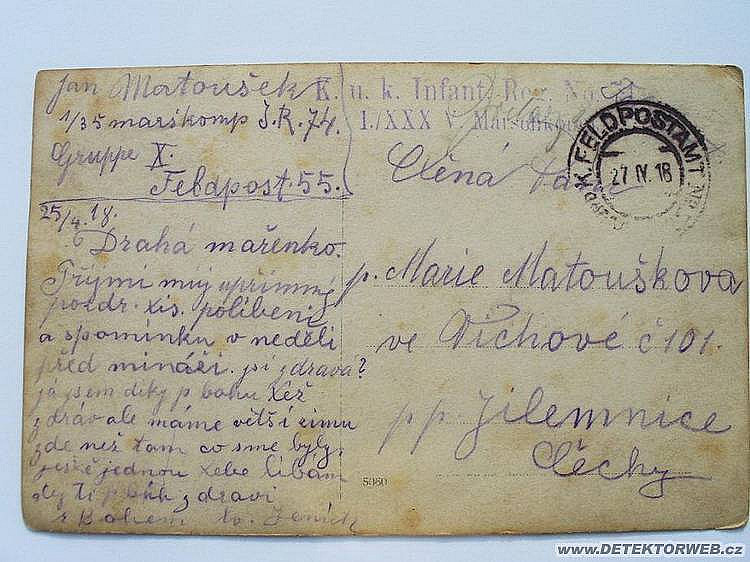 Jan Matoušek
1/35 marškomp J.R. 74.
Gruppe X.
Feldpost 55.
25/4 18.
Drahá mařenko.
Příjmi můj upřímný
pozdr. xis. políbení
a spomínku v neděli
před mináži. jsi zdrava?
já jsem díky p bohu též
zdráv ale máme větší zimu
zde než tam co sme byly.
ještě jednou tebe líbám
dej Ti p bůh zdraví
s Bohem tv. Jeník
K. u. k. Infant. Reg. No.
I./XXX V. Marsch
K.u.K. FELDPOSTAMT
27 IV 18
Ctěná
p. Marie Matouškova
ve Víchové č 101.
pp. Jilemnice
Čechy
5960
www.DETEKTORWEB.cz